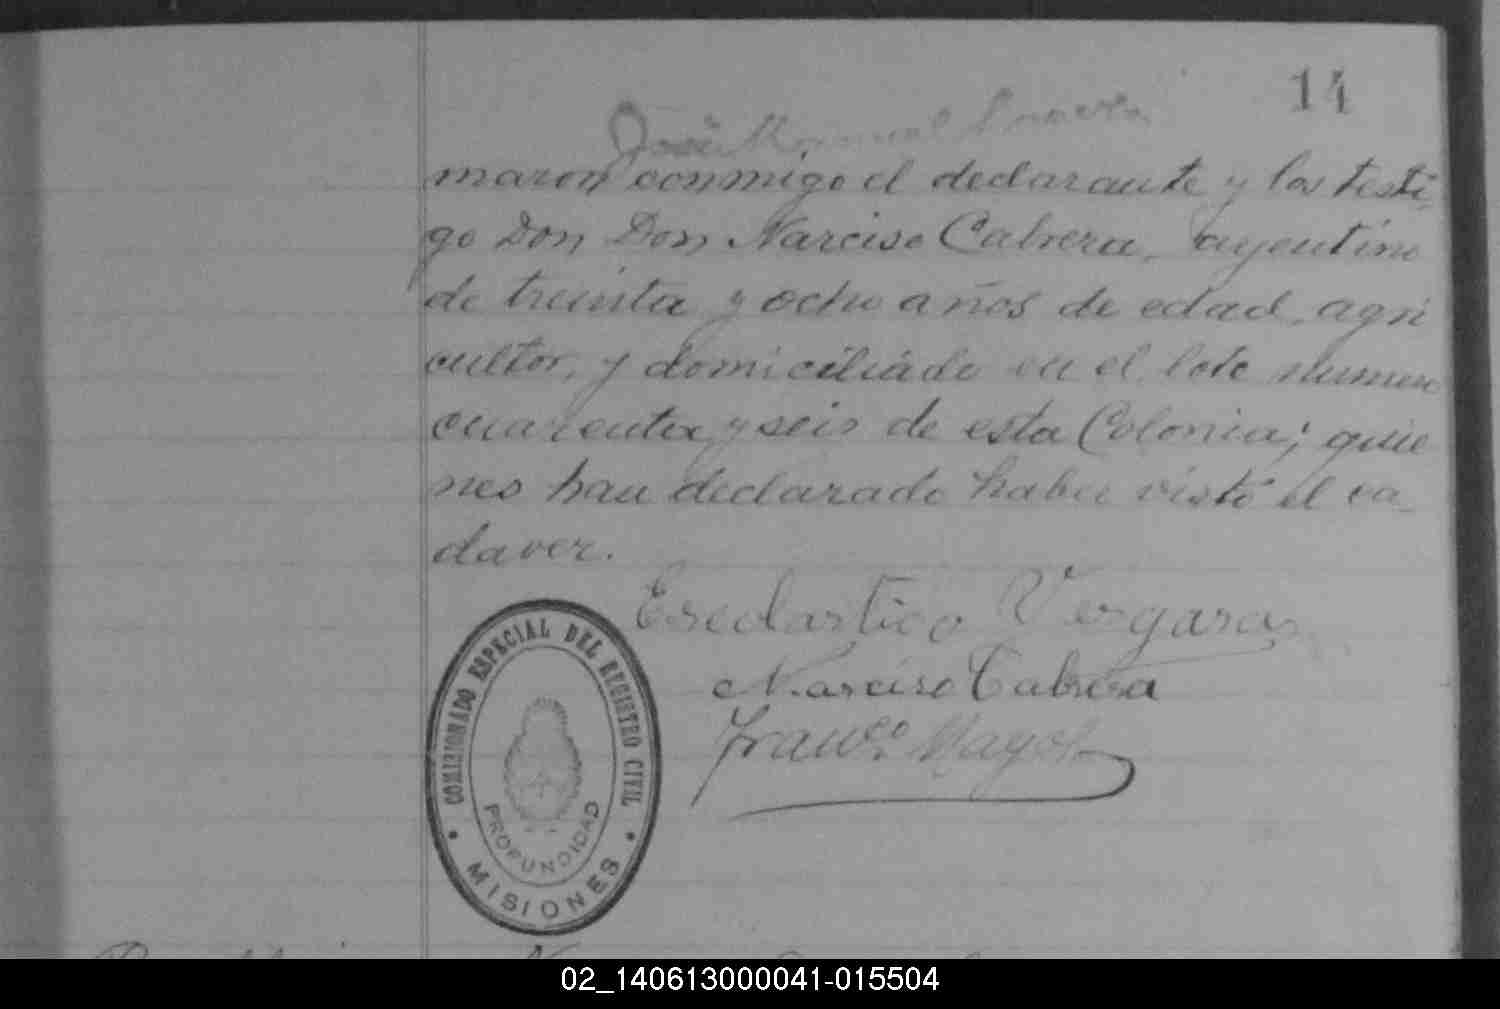 14
José Manuel
maron conmigo el declarante y los testi-
go Don Don Narciso Cabrera, argentino
de treinta y ocho años de edad, agri
cultor, y domiciliado en el lote numero
cuarenta y seis de esta Colonia; quie
nes han declarado haber visto el ca-
daver.
Escolastico Vergara
Narciso Cabrera
Franco. Mayol
COMISIONADO ESPECIAL DEL REGISTRO CIVIL
PROFUNDIDAD
MISIONES
02_140613000041-015504